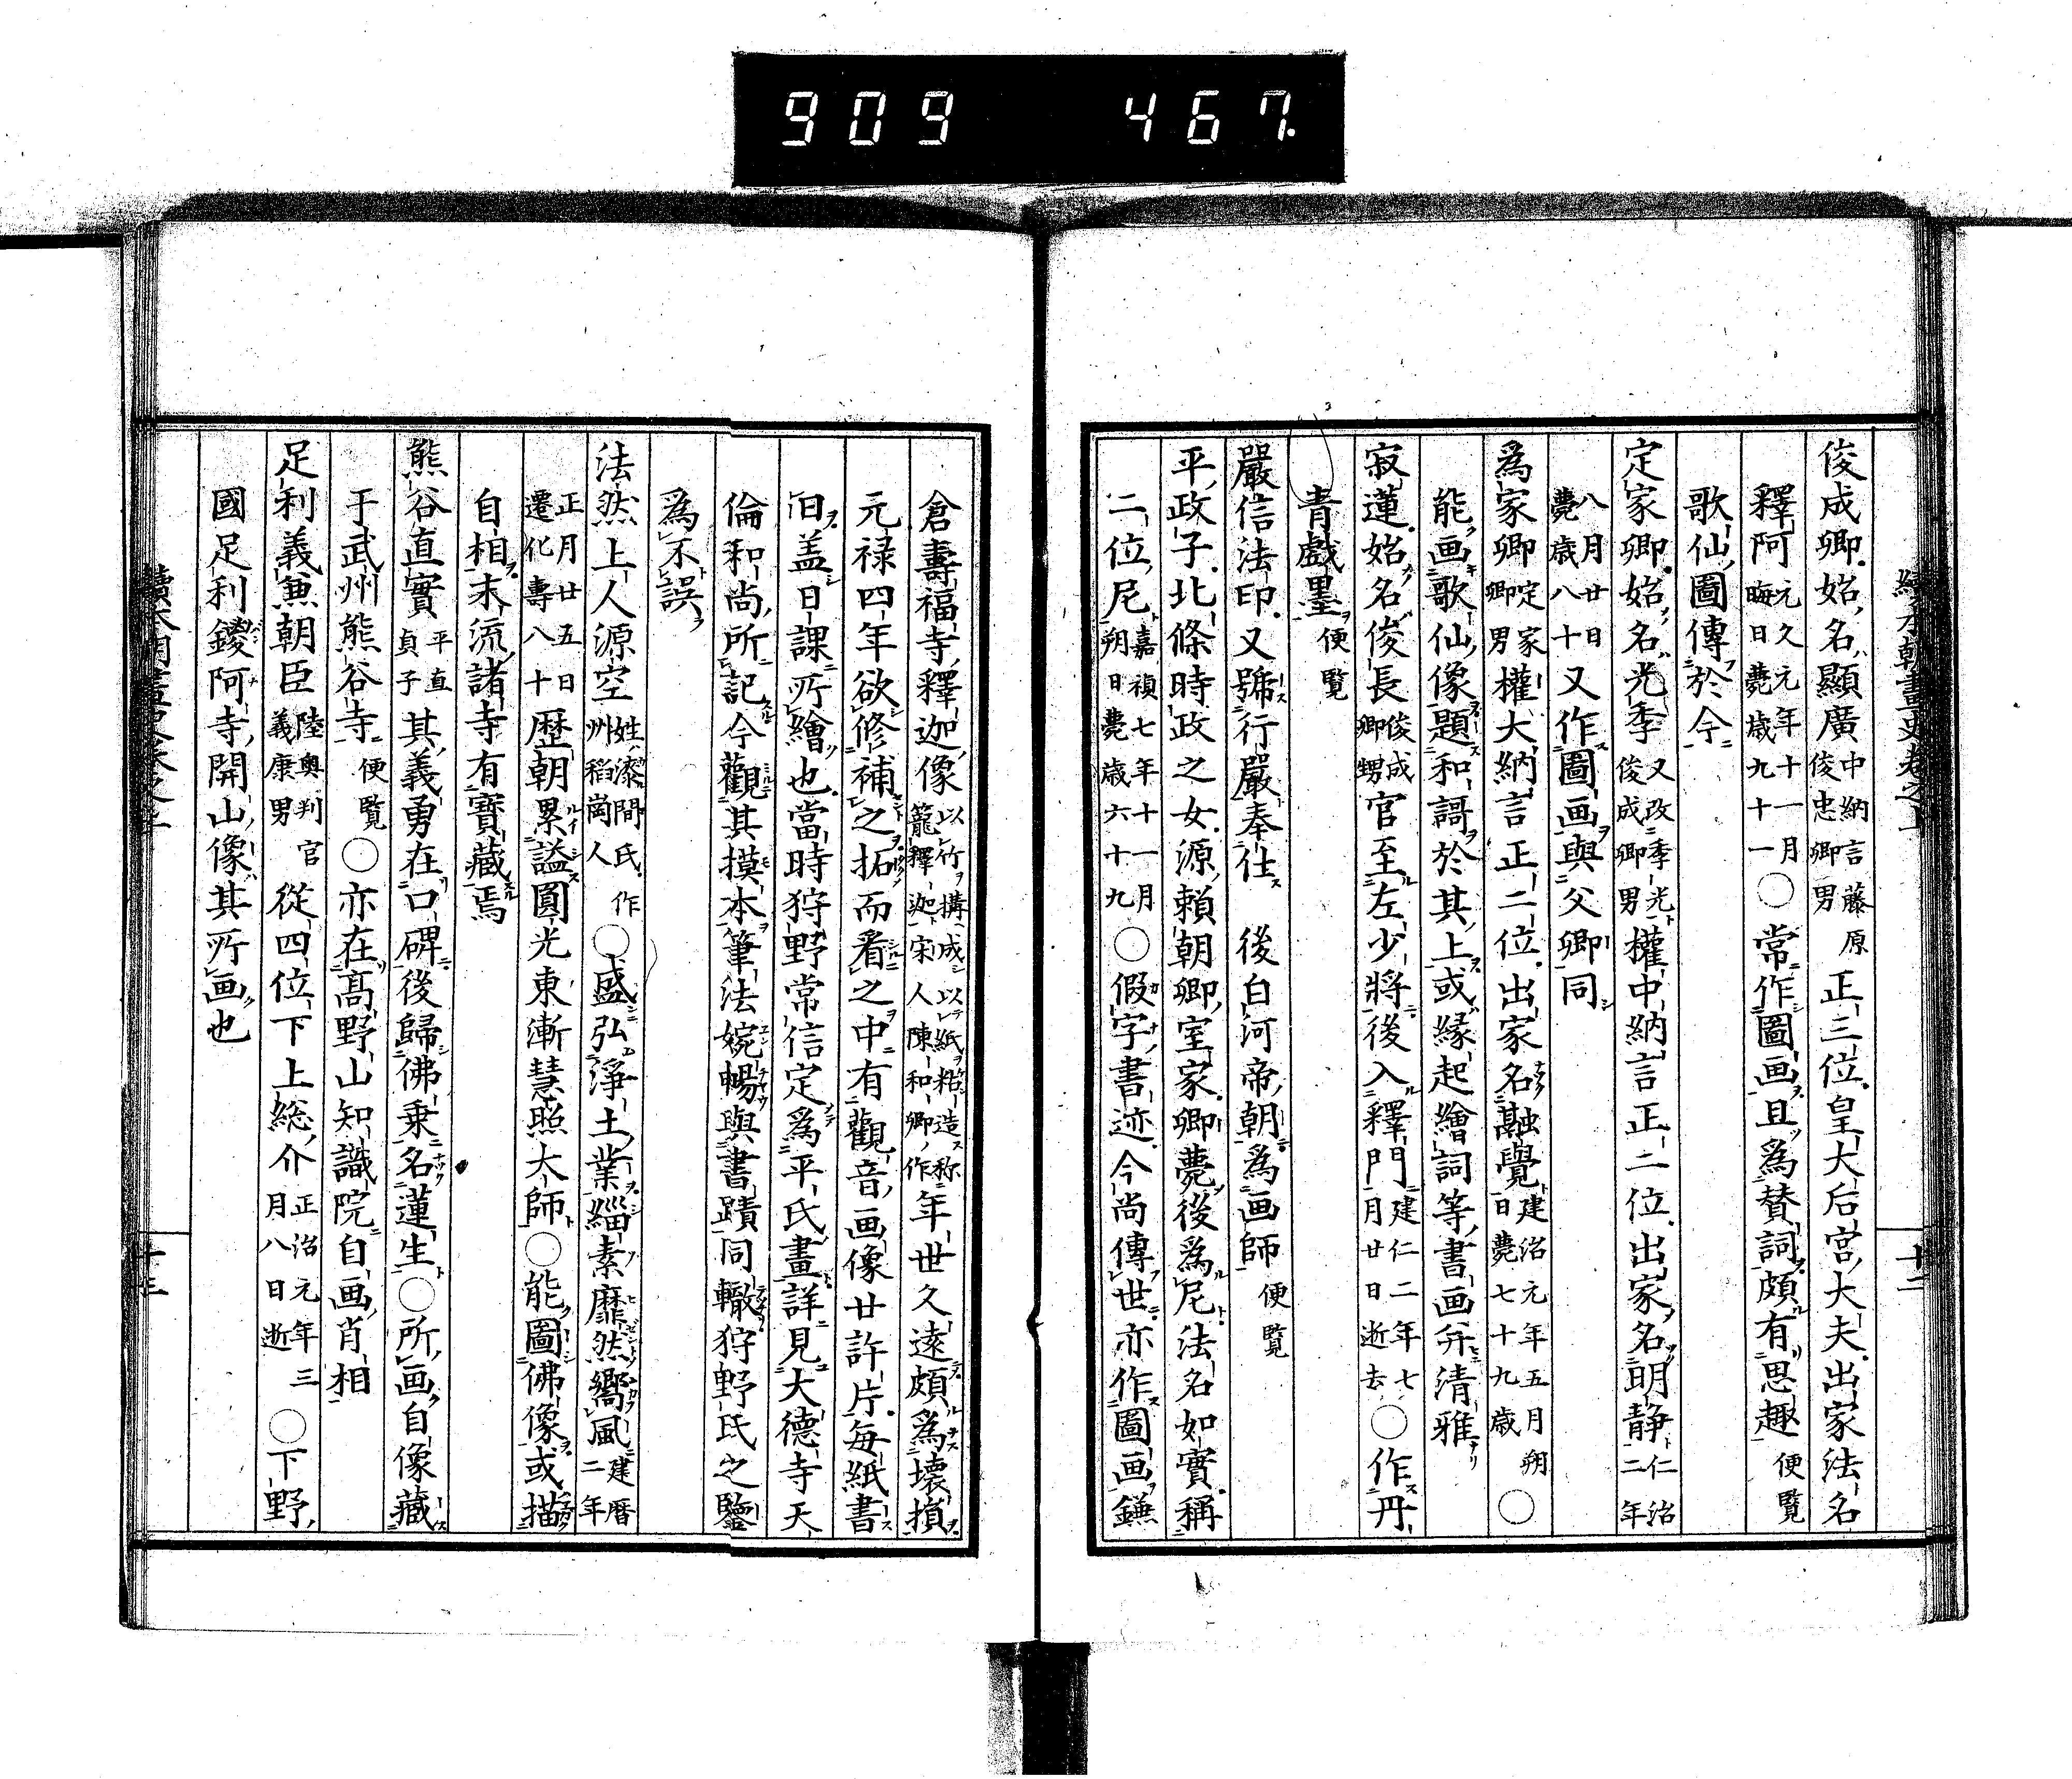 909 467
俊成卿始名顯廣中納言藤原俊忠卿男正三位皇大后宮大夫出家法名
釋阿元久元年十一月晦日薨歲九十一〇常作圖画且為賛詞頗有思趣便覽
歌仙圖傳於今
定家卿始名光季又改季光俊成卿男權中納言正二位出家名明静仁治二年
八月廿日薨歲八十又作圖画與父卿同
為家卿定家卿男權大納言正二位出家名融覺建治元年五月朔日薨七十九歲〇
能画歌仙像題和謌於其上或縁起繪詞等書画并清雅
寂蓮始名俊長俊成卿甥官至左少將後入釋門建仁二年七月廿日逝去〇作丹
青戲墨便覽
嚴信法印又號行嚴奉仕 後白河帝朝為画師便覽
平政子北條時政之女源賴朝卿室家卿薨後為尼法名如實稱
二位尼嘉禎七年十一月朔日薨歲六十九〇假字書迹今尚傳世亦作圖画鎌
倉壽福寺釋迦像以竹搆成以紙粘造称籠釋迦宋人陳和卿作年世久遠頗為壊損
元禄四年欲修補之拓而看之中有觀音画像廿許片每紙書
曰盖日課所繪也當時狩野常信定為平氏畫詳見大德寺天
倫和尚所記今觀其摸本筆法婉暢與書蹟同轍狩野氏之鑒
為不誤
法然上人源空姓漆間氏作州稻崗人〇盛弘淨土業緇素靡然嚮風建暦二年
正月廿五日遷化壽八十歷朝累謚圓光東漸慧照大師〇能圖佛像或描
自相末流諸寺有寶藏焉
熊谷直實平直貞子其義勇在口碑後歸佛乗名蓮生〇所画自像藏
于武州熊谷寺便覽〇亦在高野山知識院自画肖相
足利義兼朝臣陸奥判官義康男從四位下上総介正治元年三月八日逝〇下野
國足利鑁阿寺開山像其所画也